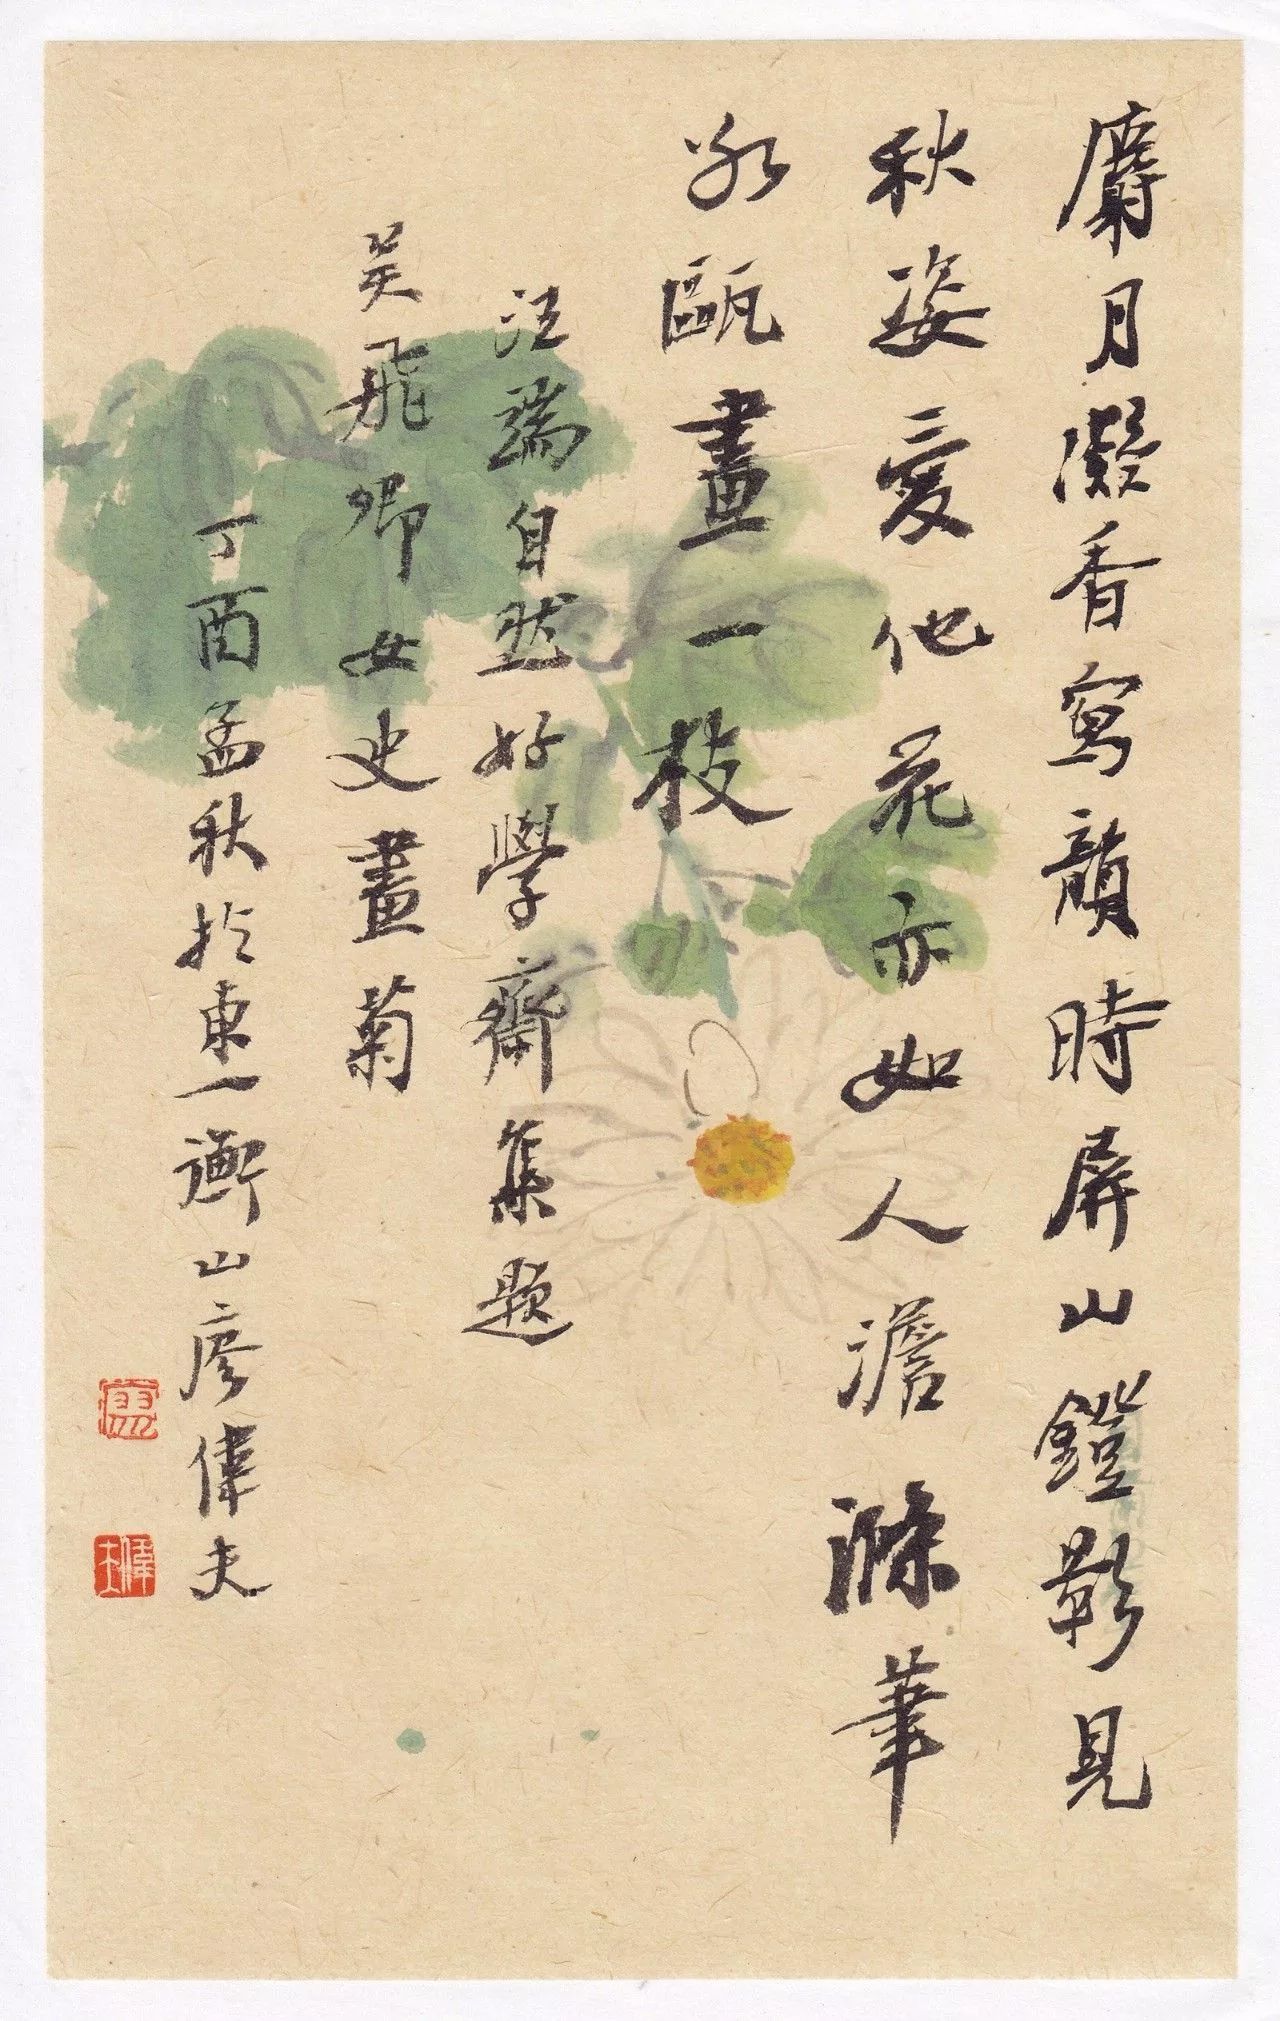 麝月凝香寫韻時屏山鐙影見
秋姿愛他花亦如人澹滌筆
冰甌畫一枝
汪端自然好學齋集題
吴飛卿女史畫菊
丁酉孟秋於東一衡山廖偉夫